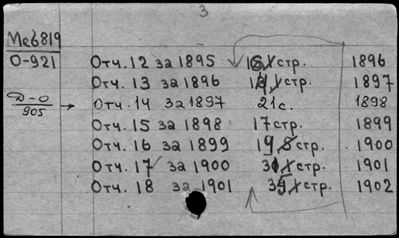 3
Мев819
О-921
Отч. 12 за 1895 стр. 1896
Отч. 13 за 1896 стр. 1897
Д-О
905 → Отч. 14 за 1897 21с. 1898
Отч. 15 за 1898 17 стр. 1899
Отч. 16 за 1899 стр. 1900
Отч. 17 за 1900 стр. 1901
Отч. 18 за 1901 стр. 1902